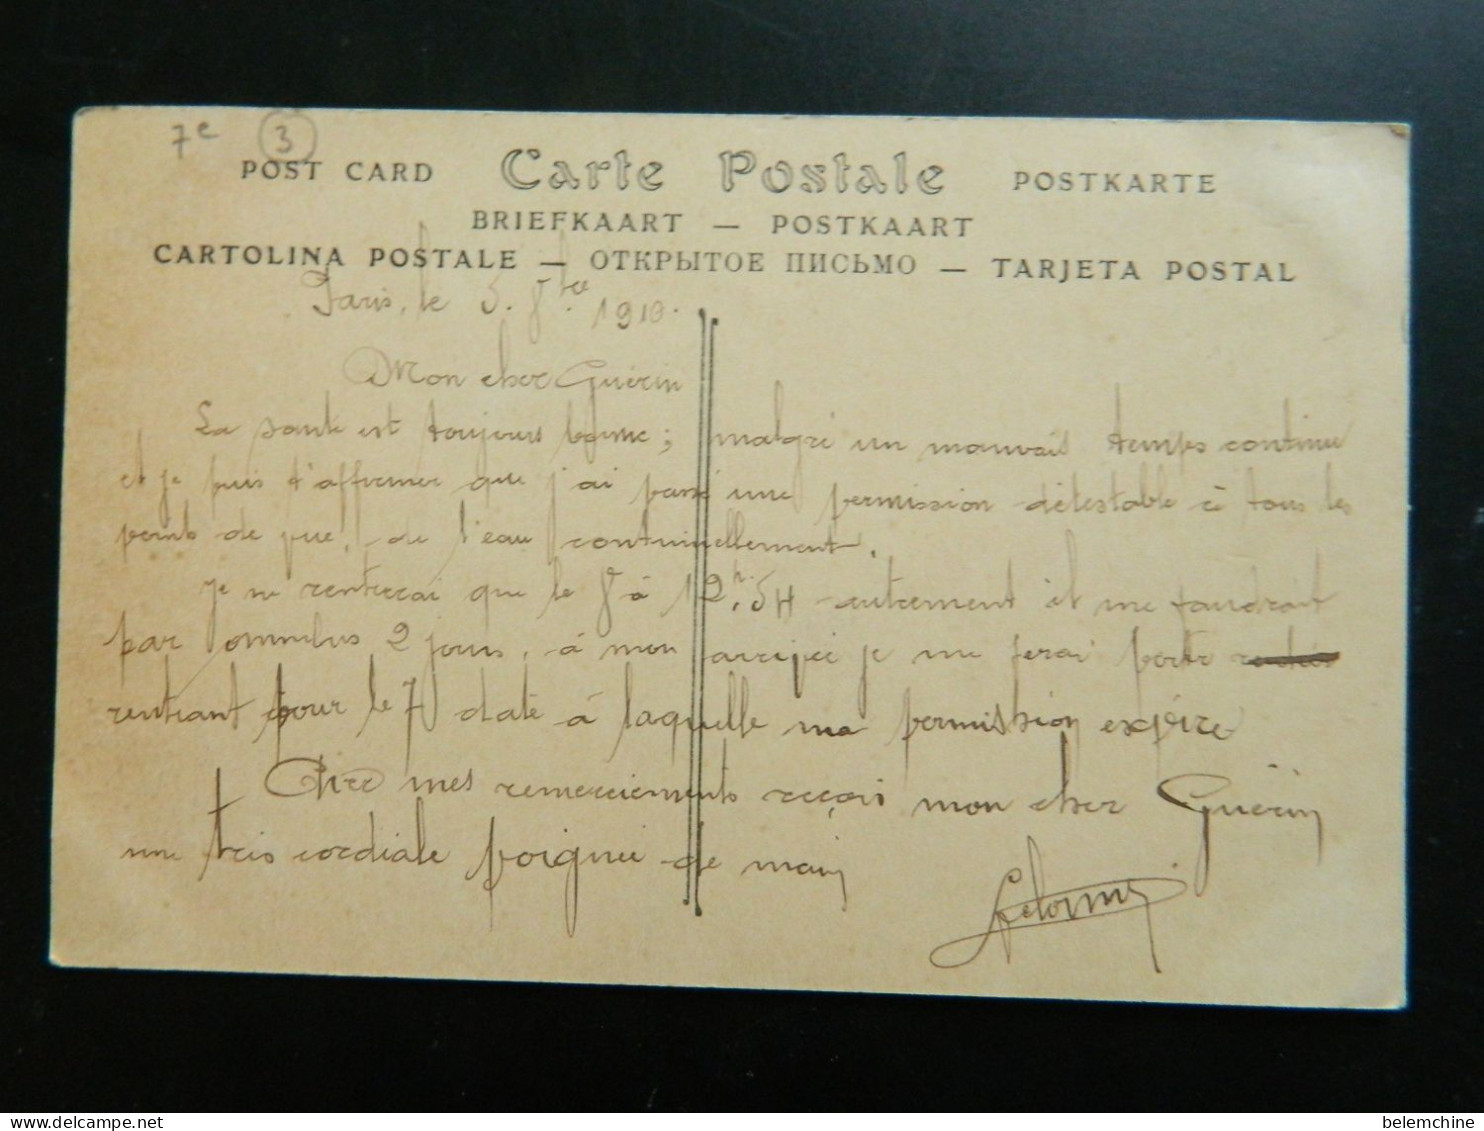 7e 3
POST CARD Carte Postale POSTKARTE
BRIEFKAART — POSTKAART
CARTOLINA POSTALE — ОТКРЫТОЕ ПИСЬМО — TARJETA POSTAL
Paris, le 5. 8bre 1910.
Mon cher Guérin
La santé est toujours bonne; malgré un mauvais temps continu
et je puis t'affirmer que j'ai passé une permission détestable à tous les
points de vue, de l'eau continuellement.
Je ne rentrerai que le 8 à 12h.54 autrement il me faudrait
par omnibus 2 jours, à mon arrivée je me ferai porter
rentrant pour le 7 date à laquelle ma permission expire
Avec mes remerciements reçois mon cher Guérin
une très cordiale poignée de main
belemchine